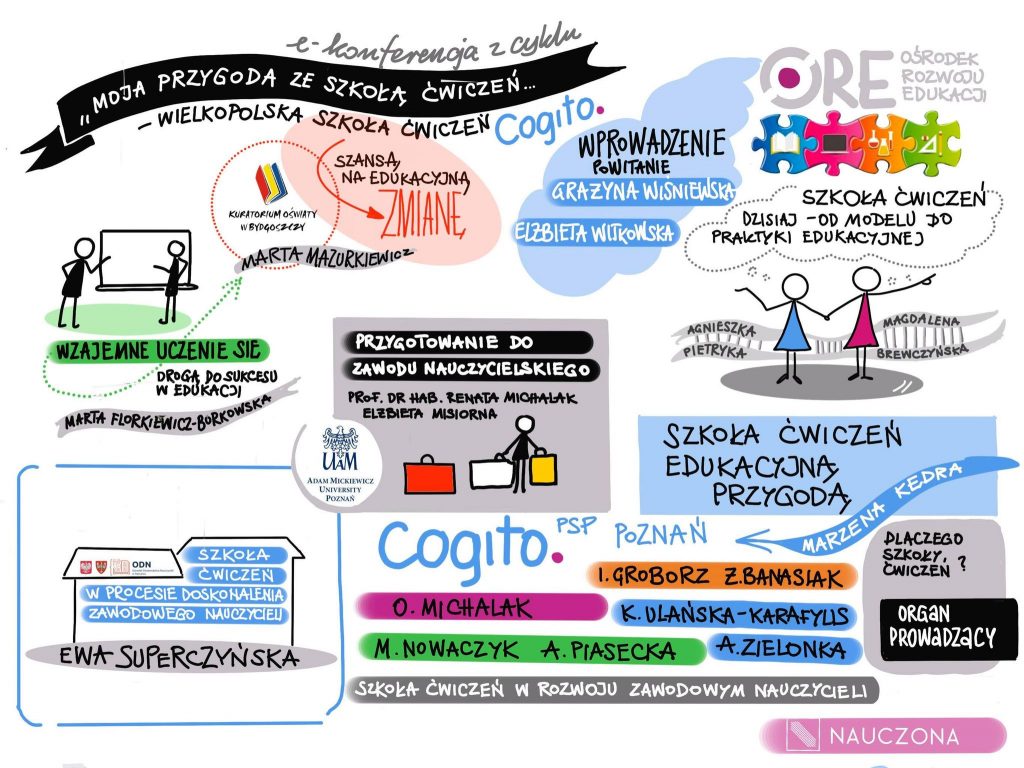 e-konferencja z cyklu
„MOJA PRZYGODA ZE SZKOŁĄ ĆWICZEŃ...
– WIELKOPOLSKA SZKOŁA ĆWICZEŃ Cogito.
SZANSĄ
NA EDUKACYJNĄ
ZMIANĘ
KURATORIUM OŚWIATY
W BYDGOSZCZY
MARTA MAZURKIEWICZ
WPROWADZENIE
POWITANIE
GRAŻYNA WIŚNIEWSKA
ELŻBIETA WITKOWSKA
ORE OŚRODEK
ROZWOJU
EDUKACJI
SZKOŁA ĆWICZEŃ
DZISIAJ – OD MODELU DO
PRAKTYKI EDUKACYJNEJ
AGNIESZKA
PIETRYKA
MAGDALENA
BREWCZYŃSKA
WZAJEMNE UCZENIE SIĘ
DROGĄ DO SUKCESU
W EDUKACJI
MARTA FLORKIEWICZ-BORKOWSKA
PRZYGOTOWANIE DO
ZAWODU NAUCZYCIELSKIEGO
PROF. DR HAB. RENATA MICHALAK
ELŻBIETA MISIORNA
UAM
ADAM MICKIEWICZ
UNIVERSITY
POZNAŃ
SZKOŁA ĆWICZEŃ
EDUKACYJNĄ
PRZYGODĄ
MARZENA KĘDRA
Cogito. PSP POZNAŃ
I. GROBORZ Ż. BANASIAK
O. MICHALAK
K. ULAŃSKA-KARAFYLIS
M. NOWACZYK A. PIASECKA
A. ZIELONKA
SZKOŁA ĆWICZEŃ W ROZWOJU ZAWODOWYM NAUCZYCIELI
DLACZEGO
SZKOŁY
ĆWICZEŃ ?
ORGAN
PROWADZĄCY
ODN
SZKOŁA
ĆWICZEŃ
W PROCESIE DOSKONALENIA
ZAWODOWEGO NAUCZYCIELI
EWA SUPERCZYŃSKA
NAUCZONA